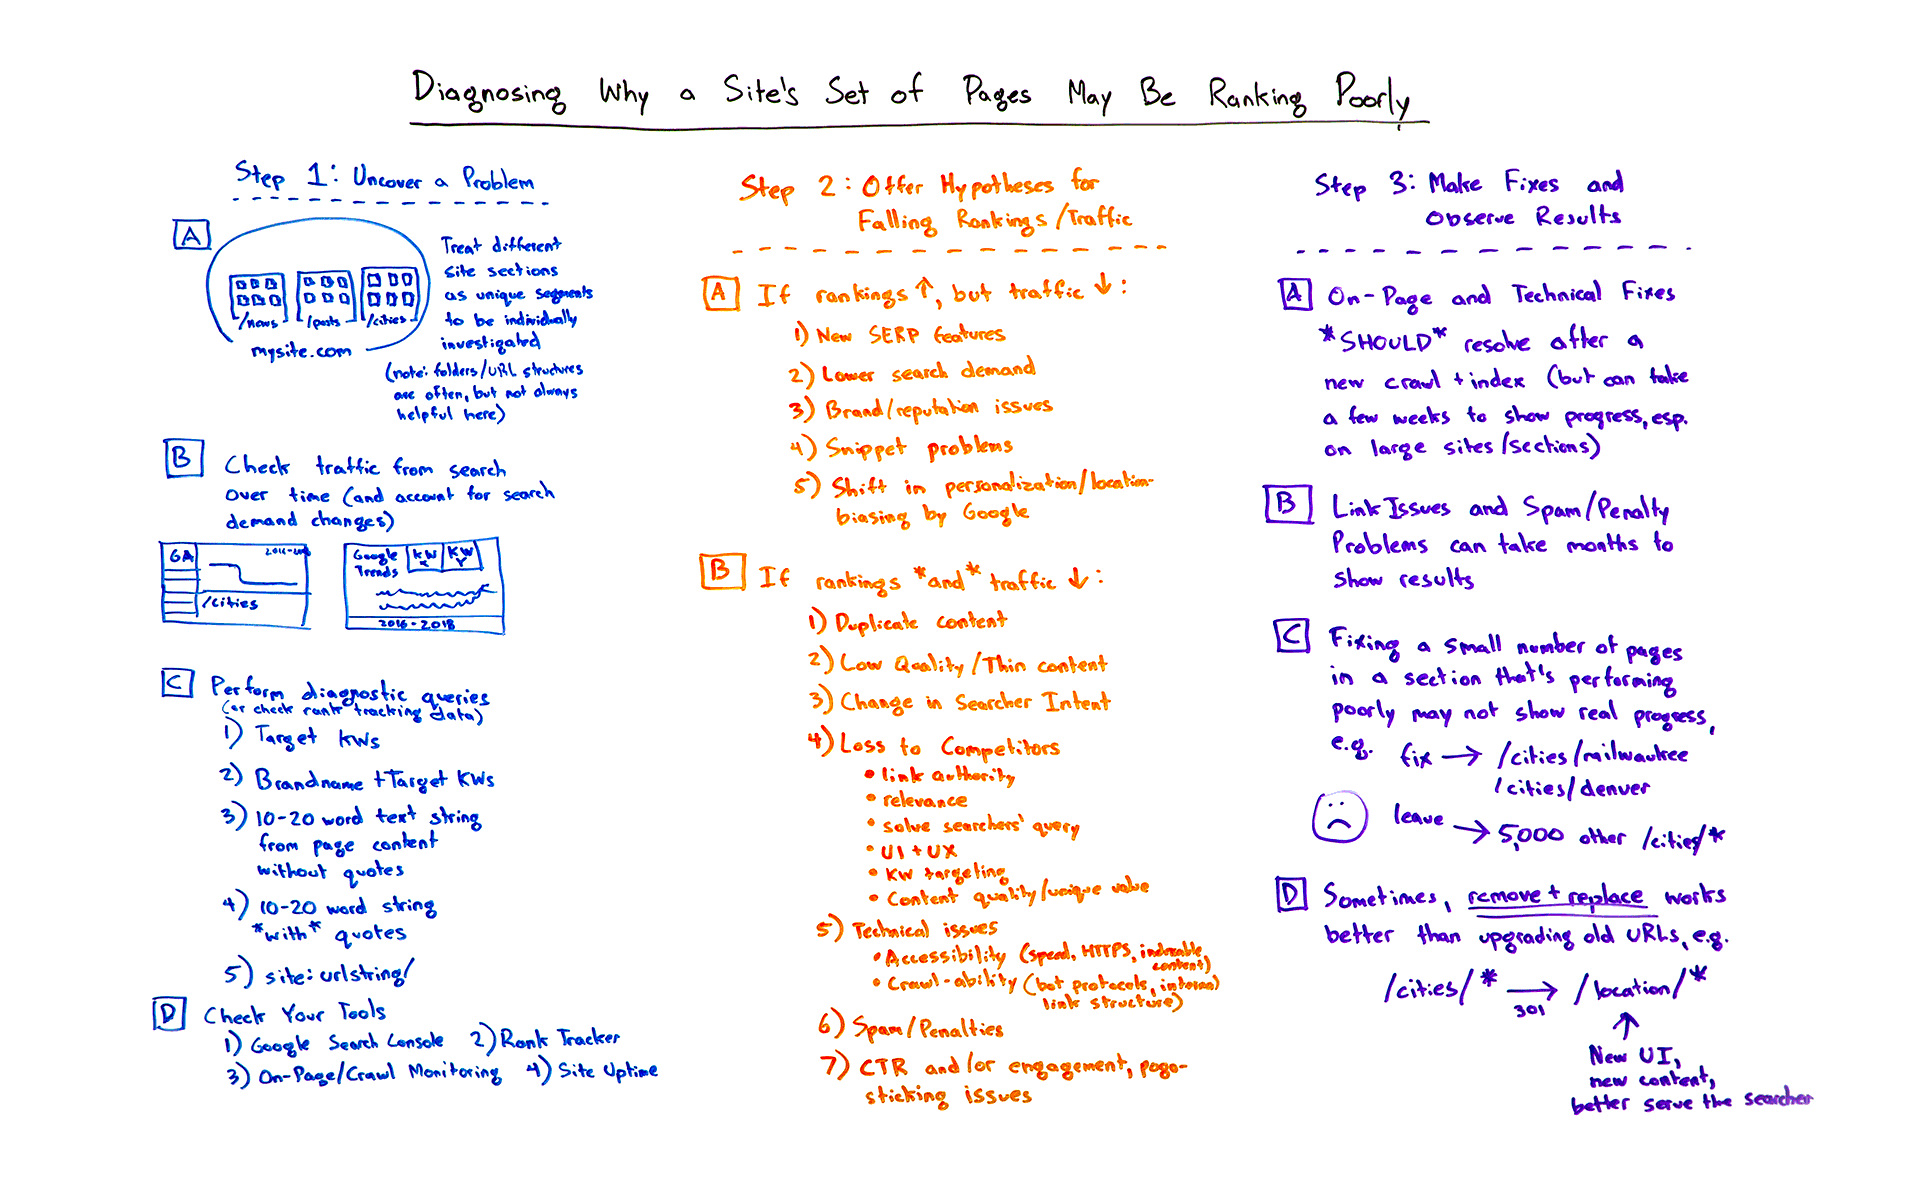 Diagnosing Why a Site's Set of Pages May Be Ranking Poorly
Step 1: Uncover a Problem
A
/news
/posts
/cities
mysite.com
Treat different
site sections
as unique segments
to be individually
investigated
(note: folders/URL structures
are often, but not always
helpful here)
B
Check traffic from search
over time (and account for search
demand changes)
GA
/cities
Google
Trends
KW
KW
2016-2018
C
Perform diagnostic queries
(or check rank tracking data)
1) Target KWs
2) Brandname + Target KWs
3) 10-20 word text string
from page content
without quotes
4) 10-20 word string
*with* quotes
5) site:urlstring/
D
Check Your Tools
1) Google Search Console 2) Rank Tracker
3) On-Page/Crawl Monitoring 4) Site Uptime
Step 2: Offer Hypotheses for
Falling Rankings/Traffic
A
If rankings ↑, but traffic ↓:
1) New SERP features
2) Lower search demand
3) Brand/reputation issues
4) Snippet problems
5) Shift in personalization/location-
biasing by Google
B
If rankings *and* traffic ↓:
1) Duplicate content
2) Low Quality/Thin content
3) Change in Searcher Intent
4) Loss to Competitors
• link authority
• relevance
• solve searchers' query
• UI + UX
• KW targeting
• Content quality/unique value
5) Technical issues
• Accessibility (speed, HTTPS, indexable
content)
• Crawl-ability (bot protocols, internal
link structure)
6) Spam/Penalties
7) CTR and/or engagement, pogo-
sticking issues
Step 3: Make Fixes and
Observe Results
A
On-Page and Technical Fixes
*SHOULD* resolve after a
new crawl + index (but can take
a few weeks to show progress, esp.
on large sites/sections)
B
Link Issues and Spam/Penalty
Problems can take months to
show results
C
Fixing a small number of pages
in a section that's performing
poorly may not show real progress,
e.g. fix → /cities/milwaukee
/cities/denver
leave → 5,000 other /cities/*
D
Sometimes, remove + replace works
better than upgrading old URLs, e.g.
/cities/* → /location/*
301
New UI,
new content,
better serve the searcher